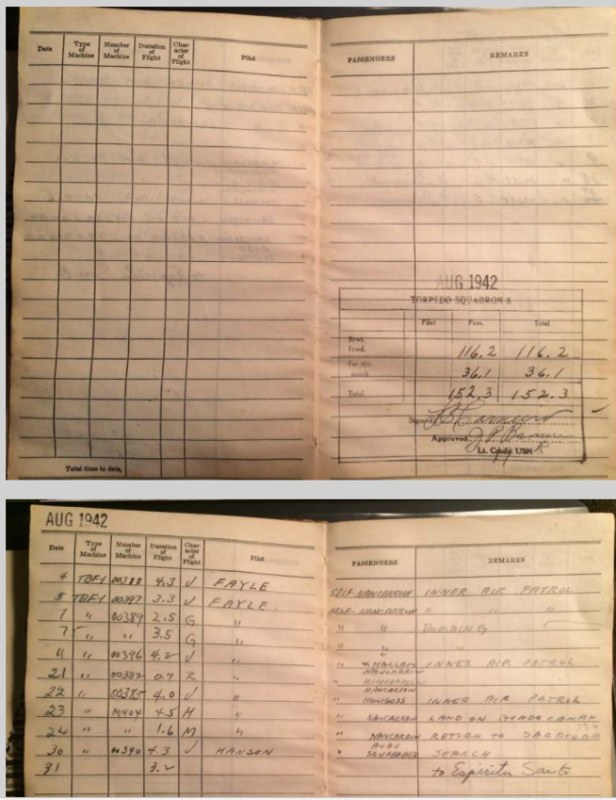 Date Type of Machine Number of Machine Duration of Flight Character of Flight Pilot PASSENGERS REMARKS
AUG 1942
TORPEDO SQUADRON 8
Pilot Pass. Total
Brot. Fwd. 116.2 116.2
For this month 36.1 36.1
Total 152.3 152.3
Signed
Approved
Lt. Comdr. USN
Total time to date,
AUG 1942
Date Type of Machine Number of Machine Duration of Flight Character of Flight Pilot PASSENGERS REMARKS
4 TBF1 00388 4.3 J FAYLE SELF-NANCARROW INNER AIR PATROL
5 TBF1 00397 3.3 J FAYLE SELF-NANCARROW " " "
7 " 00389 2.5 G " " " BOMBING
7 " " 3.5 G " " " "
11 " 00396 4.2 J " " HALLAM INNER AIR PATROL
NANCARROW
21 " 00382 0.7 R "
NANCARROW
22 " 00385 4.0 J " " INNER AIR PATROL
23 " 00404 4.5 M " " NANCARROW LAND ON GUADALCANAL
24 " " 1.6 M " " NANCARROW RETURN TO SARATOGA
30 " 00390 4.3 J HANSON " SEARCH
31 3.2 to Espiritu Santo